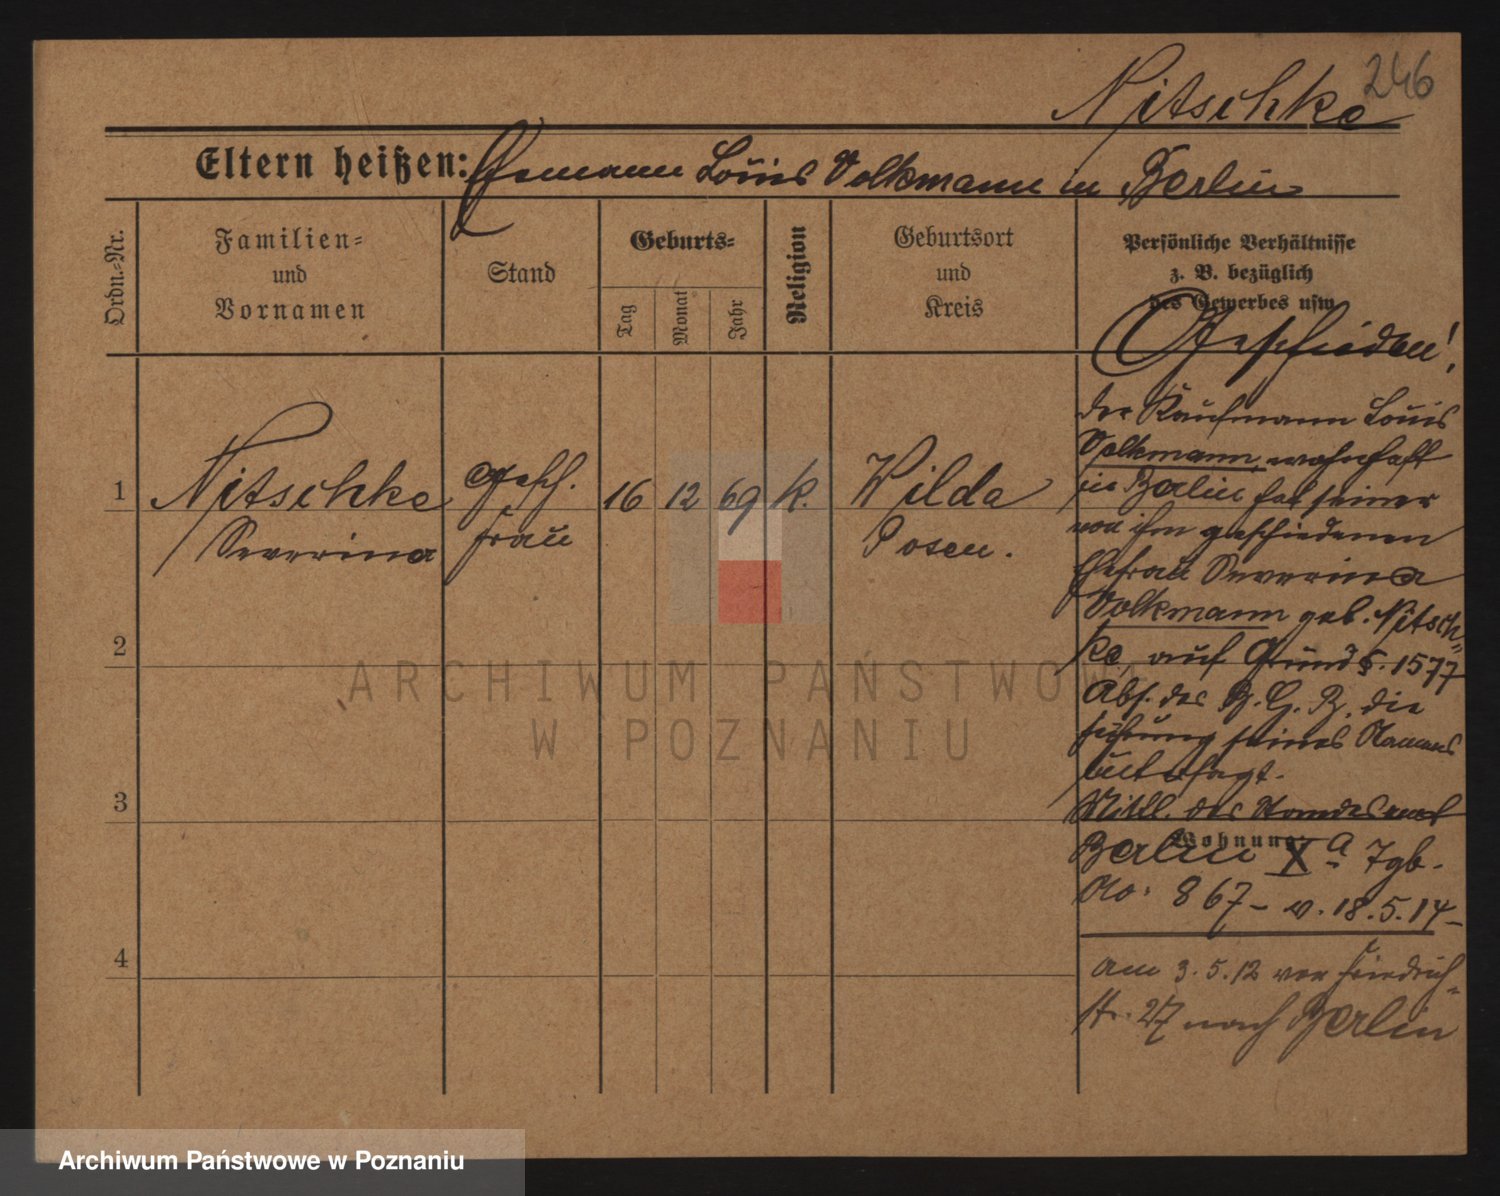 246
Nitschke
Eltern heißen: Ehemann Louis Volkmann in Berlin
Ordn.-Nr.
Familien-
und
Vornamen
Stand
Geburts-
Tag
Monat
Jahr
Religion
Geburtsort
und
Kreis
Persönliche Verhältnisse
z. B. bezüglich
des Gewerbes usw.
Geschieden!
1
Nitschke
Severina
gesch.
Frau
16 12 69 k.
Wilda
Posen.
der Kaufmann Louis
Volkmann, wohnhaft
in Berlin hat seiner
von ihm geschiedenen
Ehefrau Severina
Volkmann geb. Nitsch-
ke auf Grund §. 1577
Abs. des B. G. B. die
Führung seines Namens
untersagt.
Mittl. des Standesamt
Wohnung
Berlin X a Tgb.
No: 867 - v. 18.5.14 -
am 3.5.12 von Friedrich-
str. 27 nach Berlin
2
3
4
ARCHIWUM PAŃSTWOWE
W POZNANIU
Archiwum Państwowe w Poznaniu